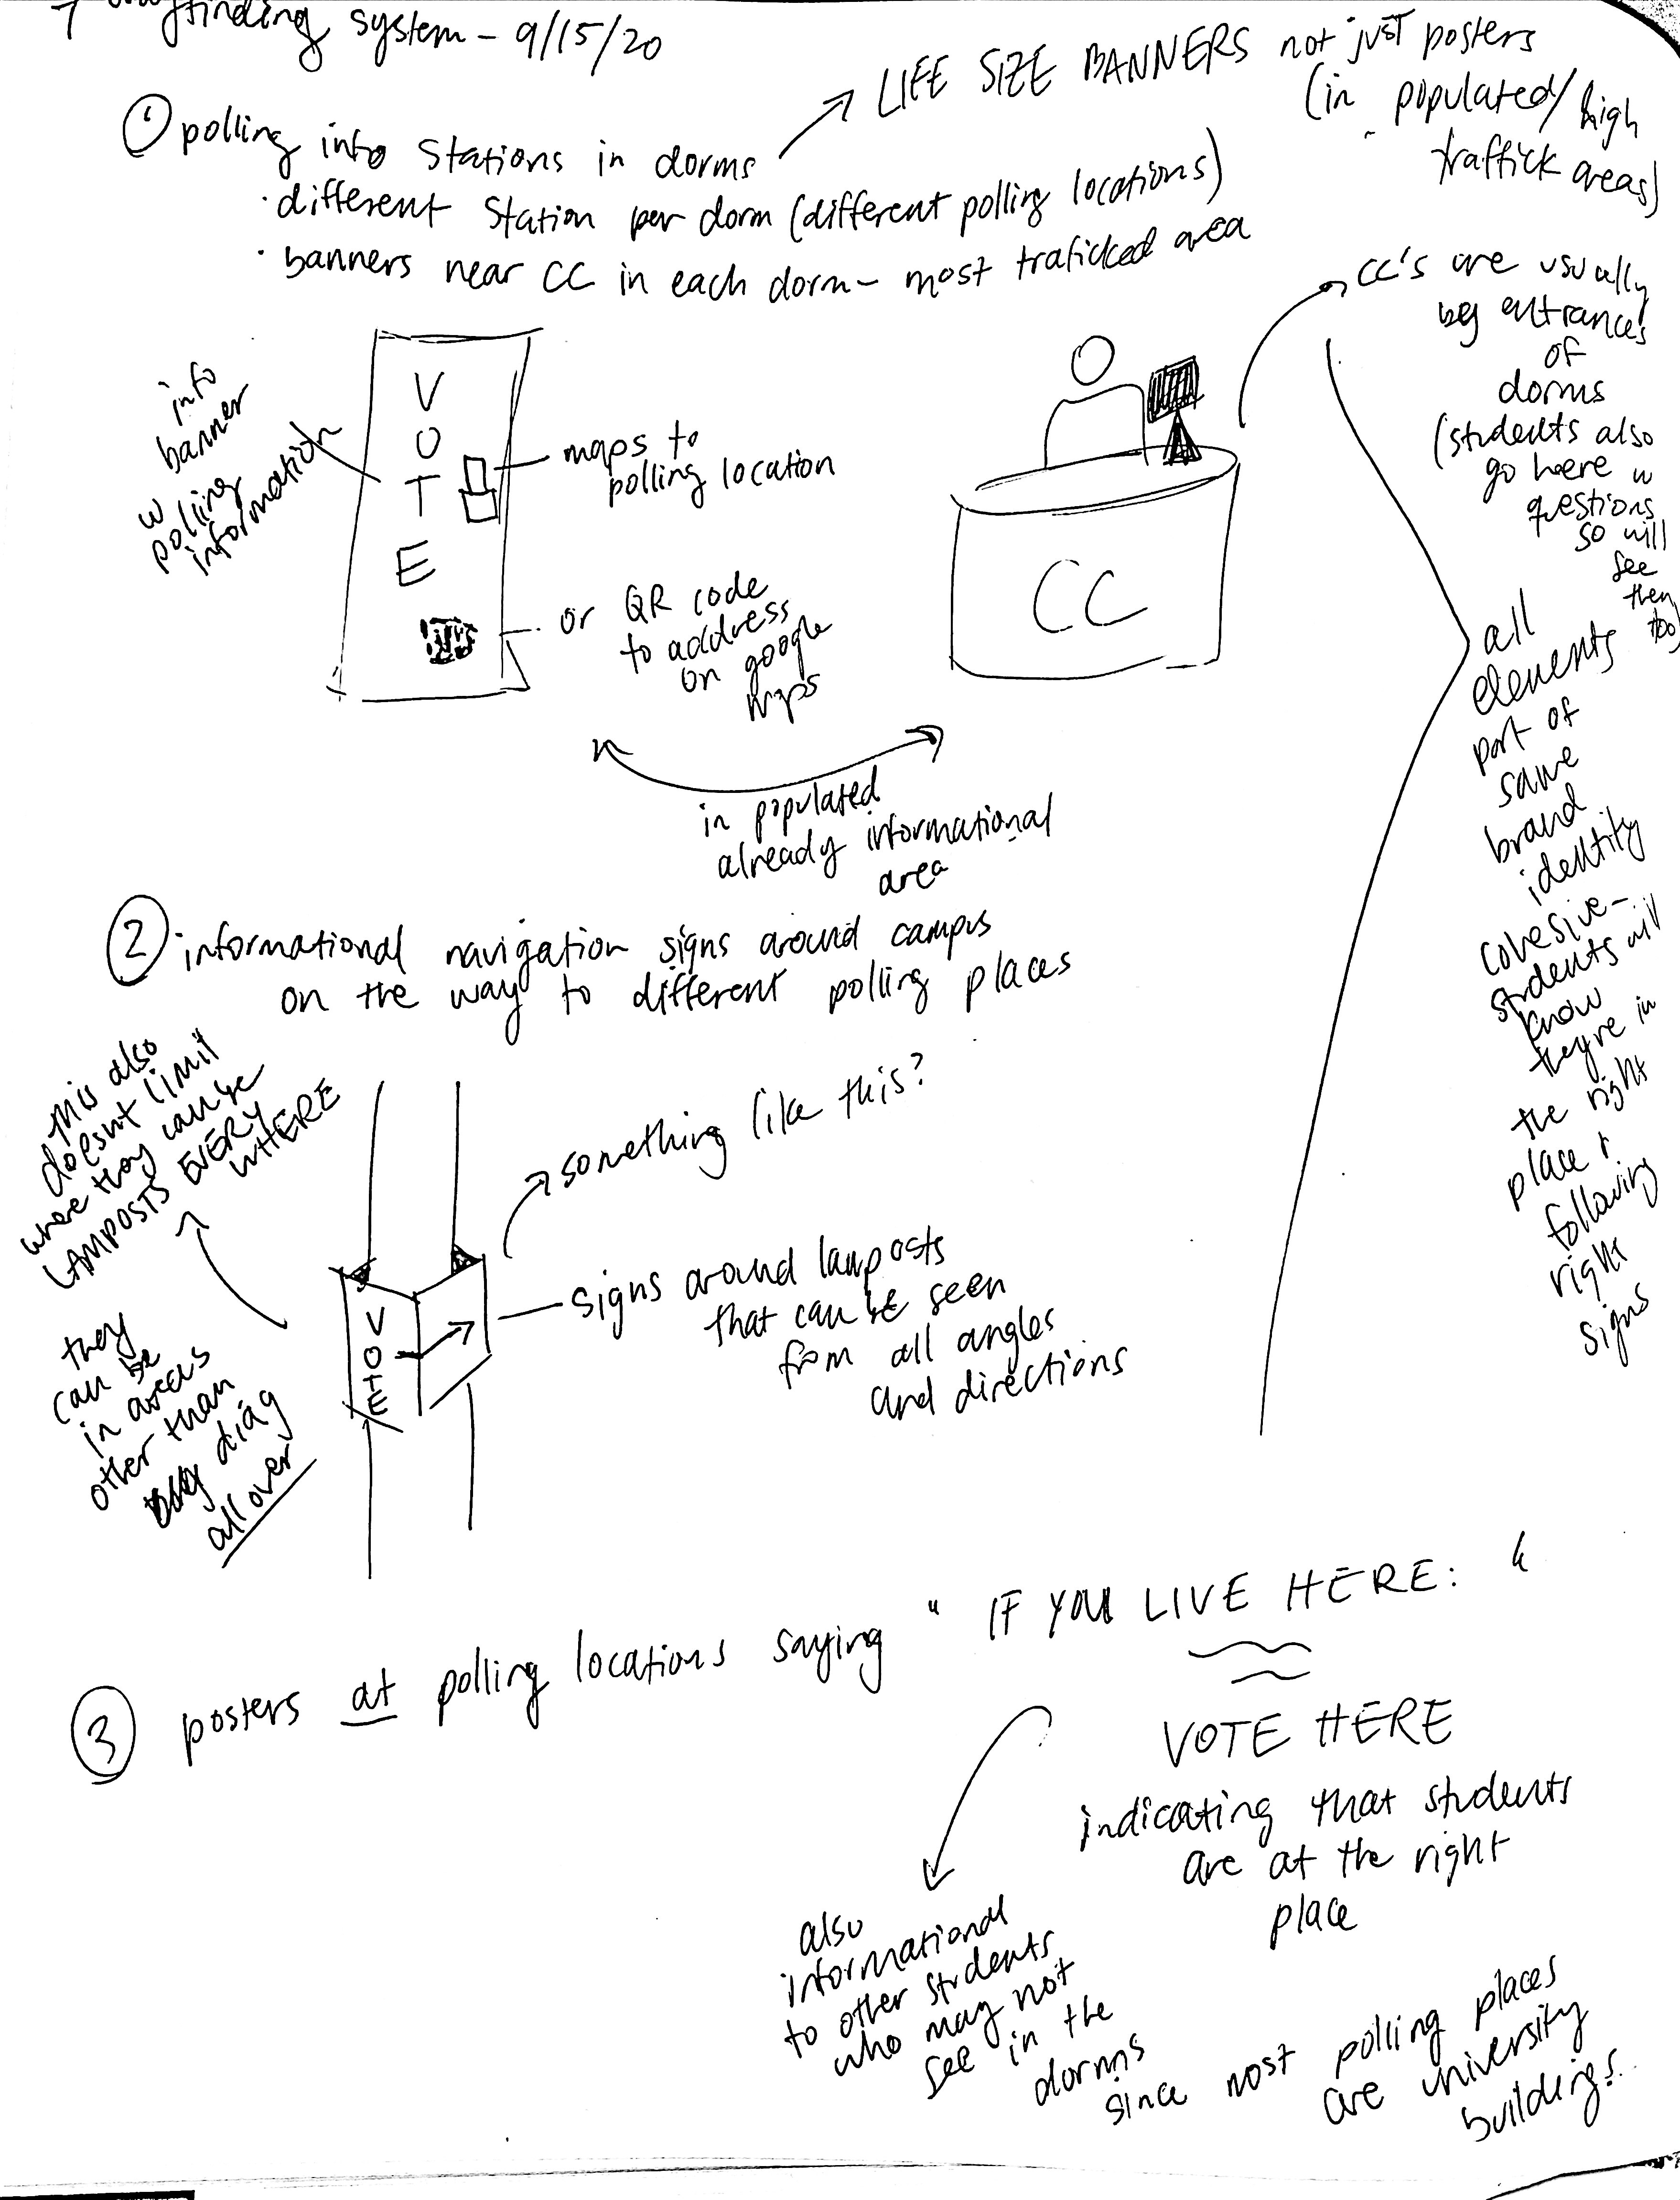 wayfinding system - 9/15/20
① polling info stations in dorms
LIFE SIZE BANNERS not just posters
(in populated/high
traffick areas)
· different station per dorm (different polling locations)
· banners near CC in each dorm - most traficked area
info
banner
w
polling
information
V
O
T
E
maps to
polling location
or QR code
to address
on google
maps
CC
CC's are usually
by entrances
of
dorms
(students also
go here w
questions
so will
see
them
too)
in populated
already informational
area
all
elements
part of
same
brand
identity
cohesive -
students will
know
they're in
the right
place +
following
right
signs
② informational navigation signs around campus
on the way to different polling places
this also
doesnt limit
where they can be
LAMPOSTS EVERY
WHERE
something like this?
V
O
T
E
signs around lamposts
that can be seen
from all angles
and directions
they
can be
in areas
other than
diag
all over
③ posters at polling locations saying " IF YOU LIVE HERE: "
VOTE HERE
indicating that students
are at the right
place
also
informational
to other students
who may not
see in the
dorms
since most polling places
are university
buildings.